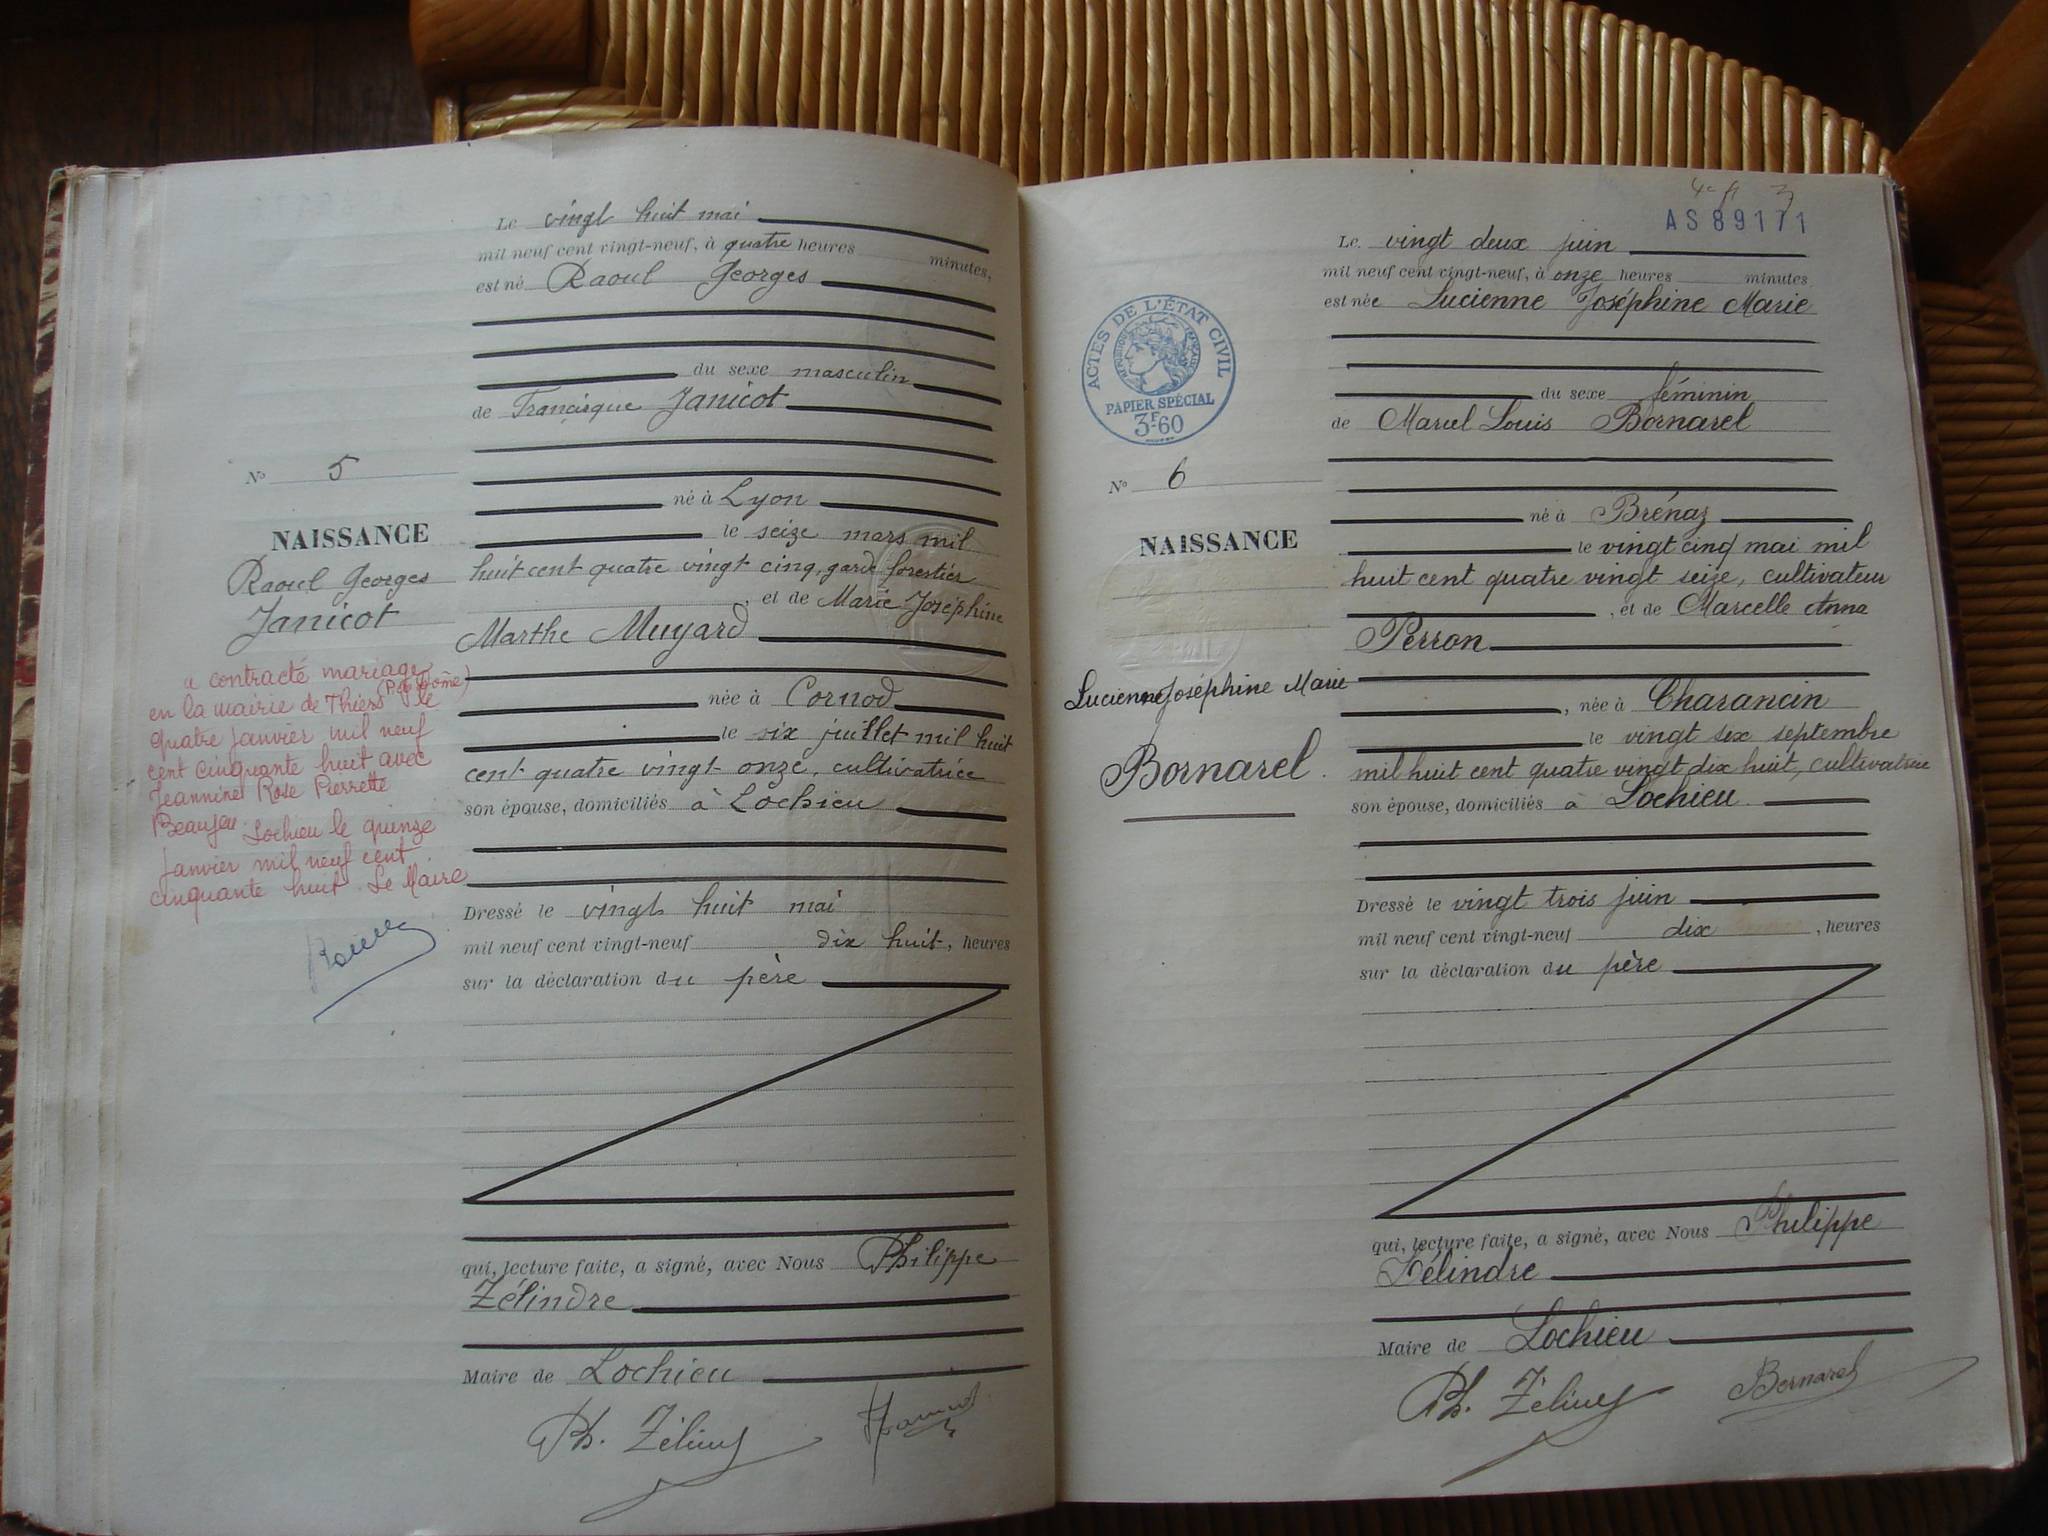 Le vingt huit mai
mil neuf cent vingt-neuf, à quatre heures minutes,
est né Raoul Georges
du sexe masculin
de Francisque Janicot
N° 5
né à Lyon
NAISSANCE
le seize mars mil
Raoul Georges
huit cent quatre vingt cinq, garde forestier
Janicot
, et de Marie Joséphine
Marthe Muyard
a contracté mariage
en la mairie de Thiers (Puy de Dôme) le
quatre janvier mil neuf
cent cinquante huit avec
Jeannine Rose Pierrette
Beaujeu. Lochieu le quinze
janvier mil neuf cent
cinquante huit Le Maire
née à Cornod
le six juillet mil huit
cent quatre vingt onze, cultivatrice
son épouse, domiciliés à Lochieu
Dressé le vingt huit mai
mil neuf cent vingt-neuf dix huit, heures
sur la déclaration du père
qui, lecture faite, a signé, avec Nous Philippe
Zélindre
Maire de Lochieu
AS89171
Le vingt deux juin
mil neuf cent vingt-neuf, à onze heures minutes
est née Lucienne Joséphine Marie
ACTES DE L'ÉTAT CIVIL
RÉPUBLIQUE FRANÇAISE
PAPIER SPÉCIAL
3F.60
du sexe féminin
de Marcel Louis Bornarel
N° 6
né à Brénaz
NAISSANCE
le vingt cinq mai mil
huit cent quatre vingt seize, cultivateur
, et de Marcelle Anna
Perron
Lucienne Joséphine Marie
Bornarel.
, née à Charancin
le vingt six septembre
mil huit cent quatre vingt dix huit, cultivatrice
son épouse, domiciliés à Lochieu
Dressé le vingt trois juin
mil neuf cent vingt-neuf dix , heures
sur la déclaration du père
qui, lecture faite, a signé, avec Nous Philippe
Zélindre
Maire de Lochieu
Bornarel